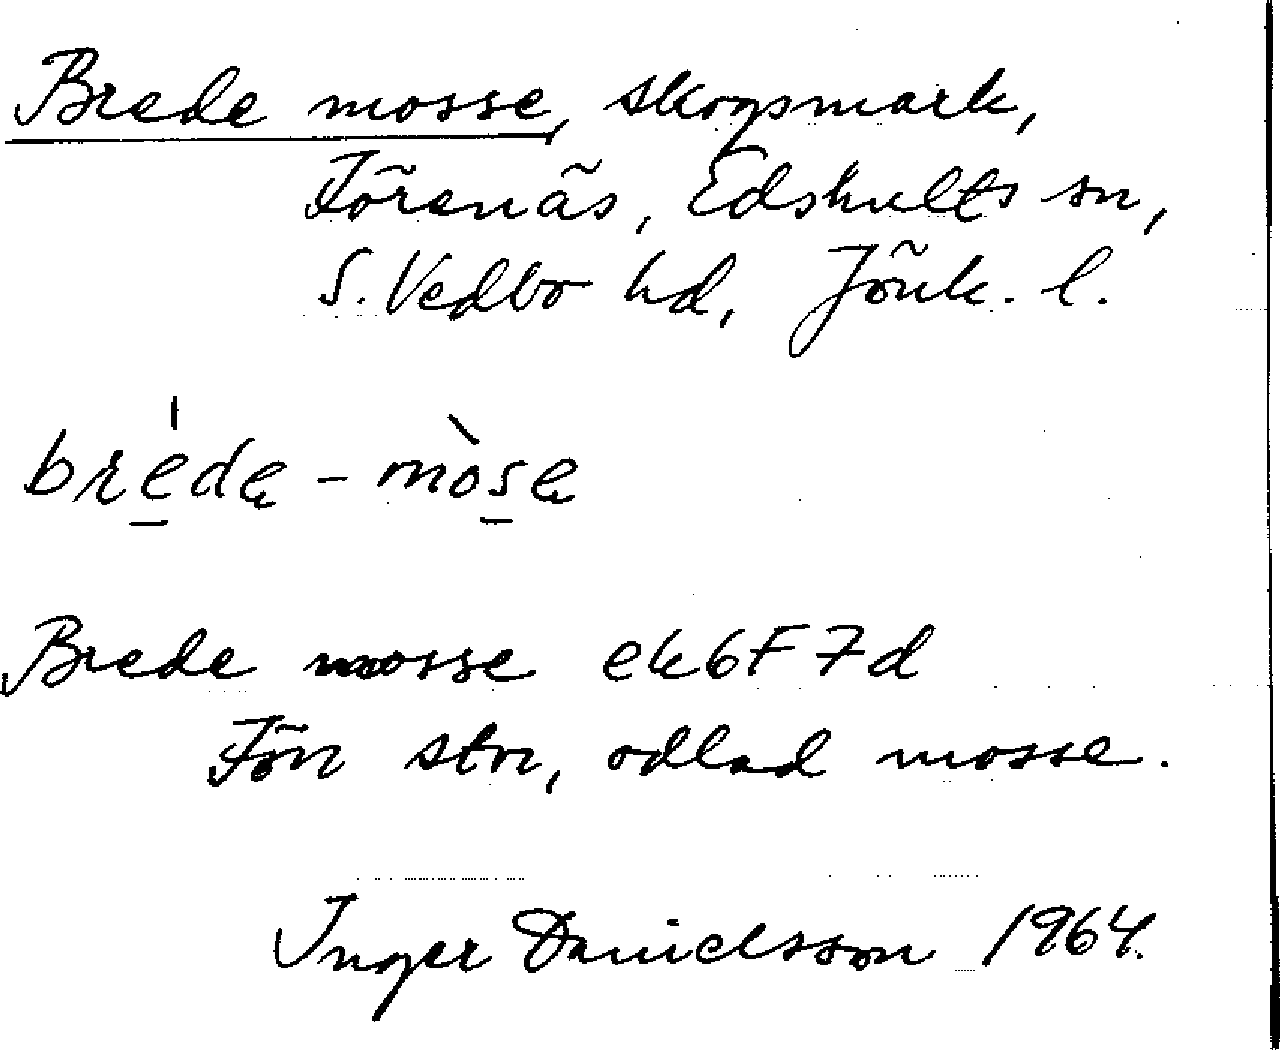 Brede mosse, skogsmark,
Förenäs, Edshults sn,
S. Vedbo hd, Jönk. l.
brede - mòse
Brede mosse ek6F7d
Förr stor, odlad mosse.
Inger Danielsson 1964.